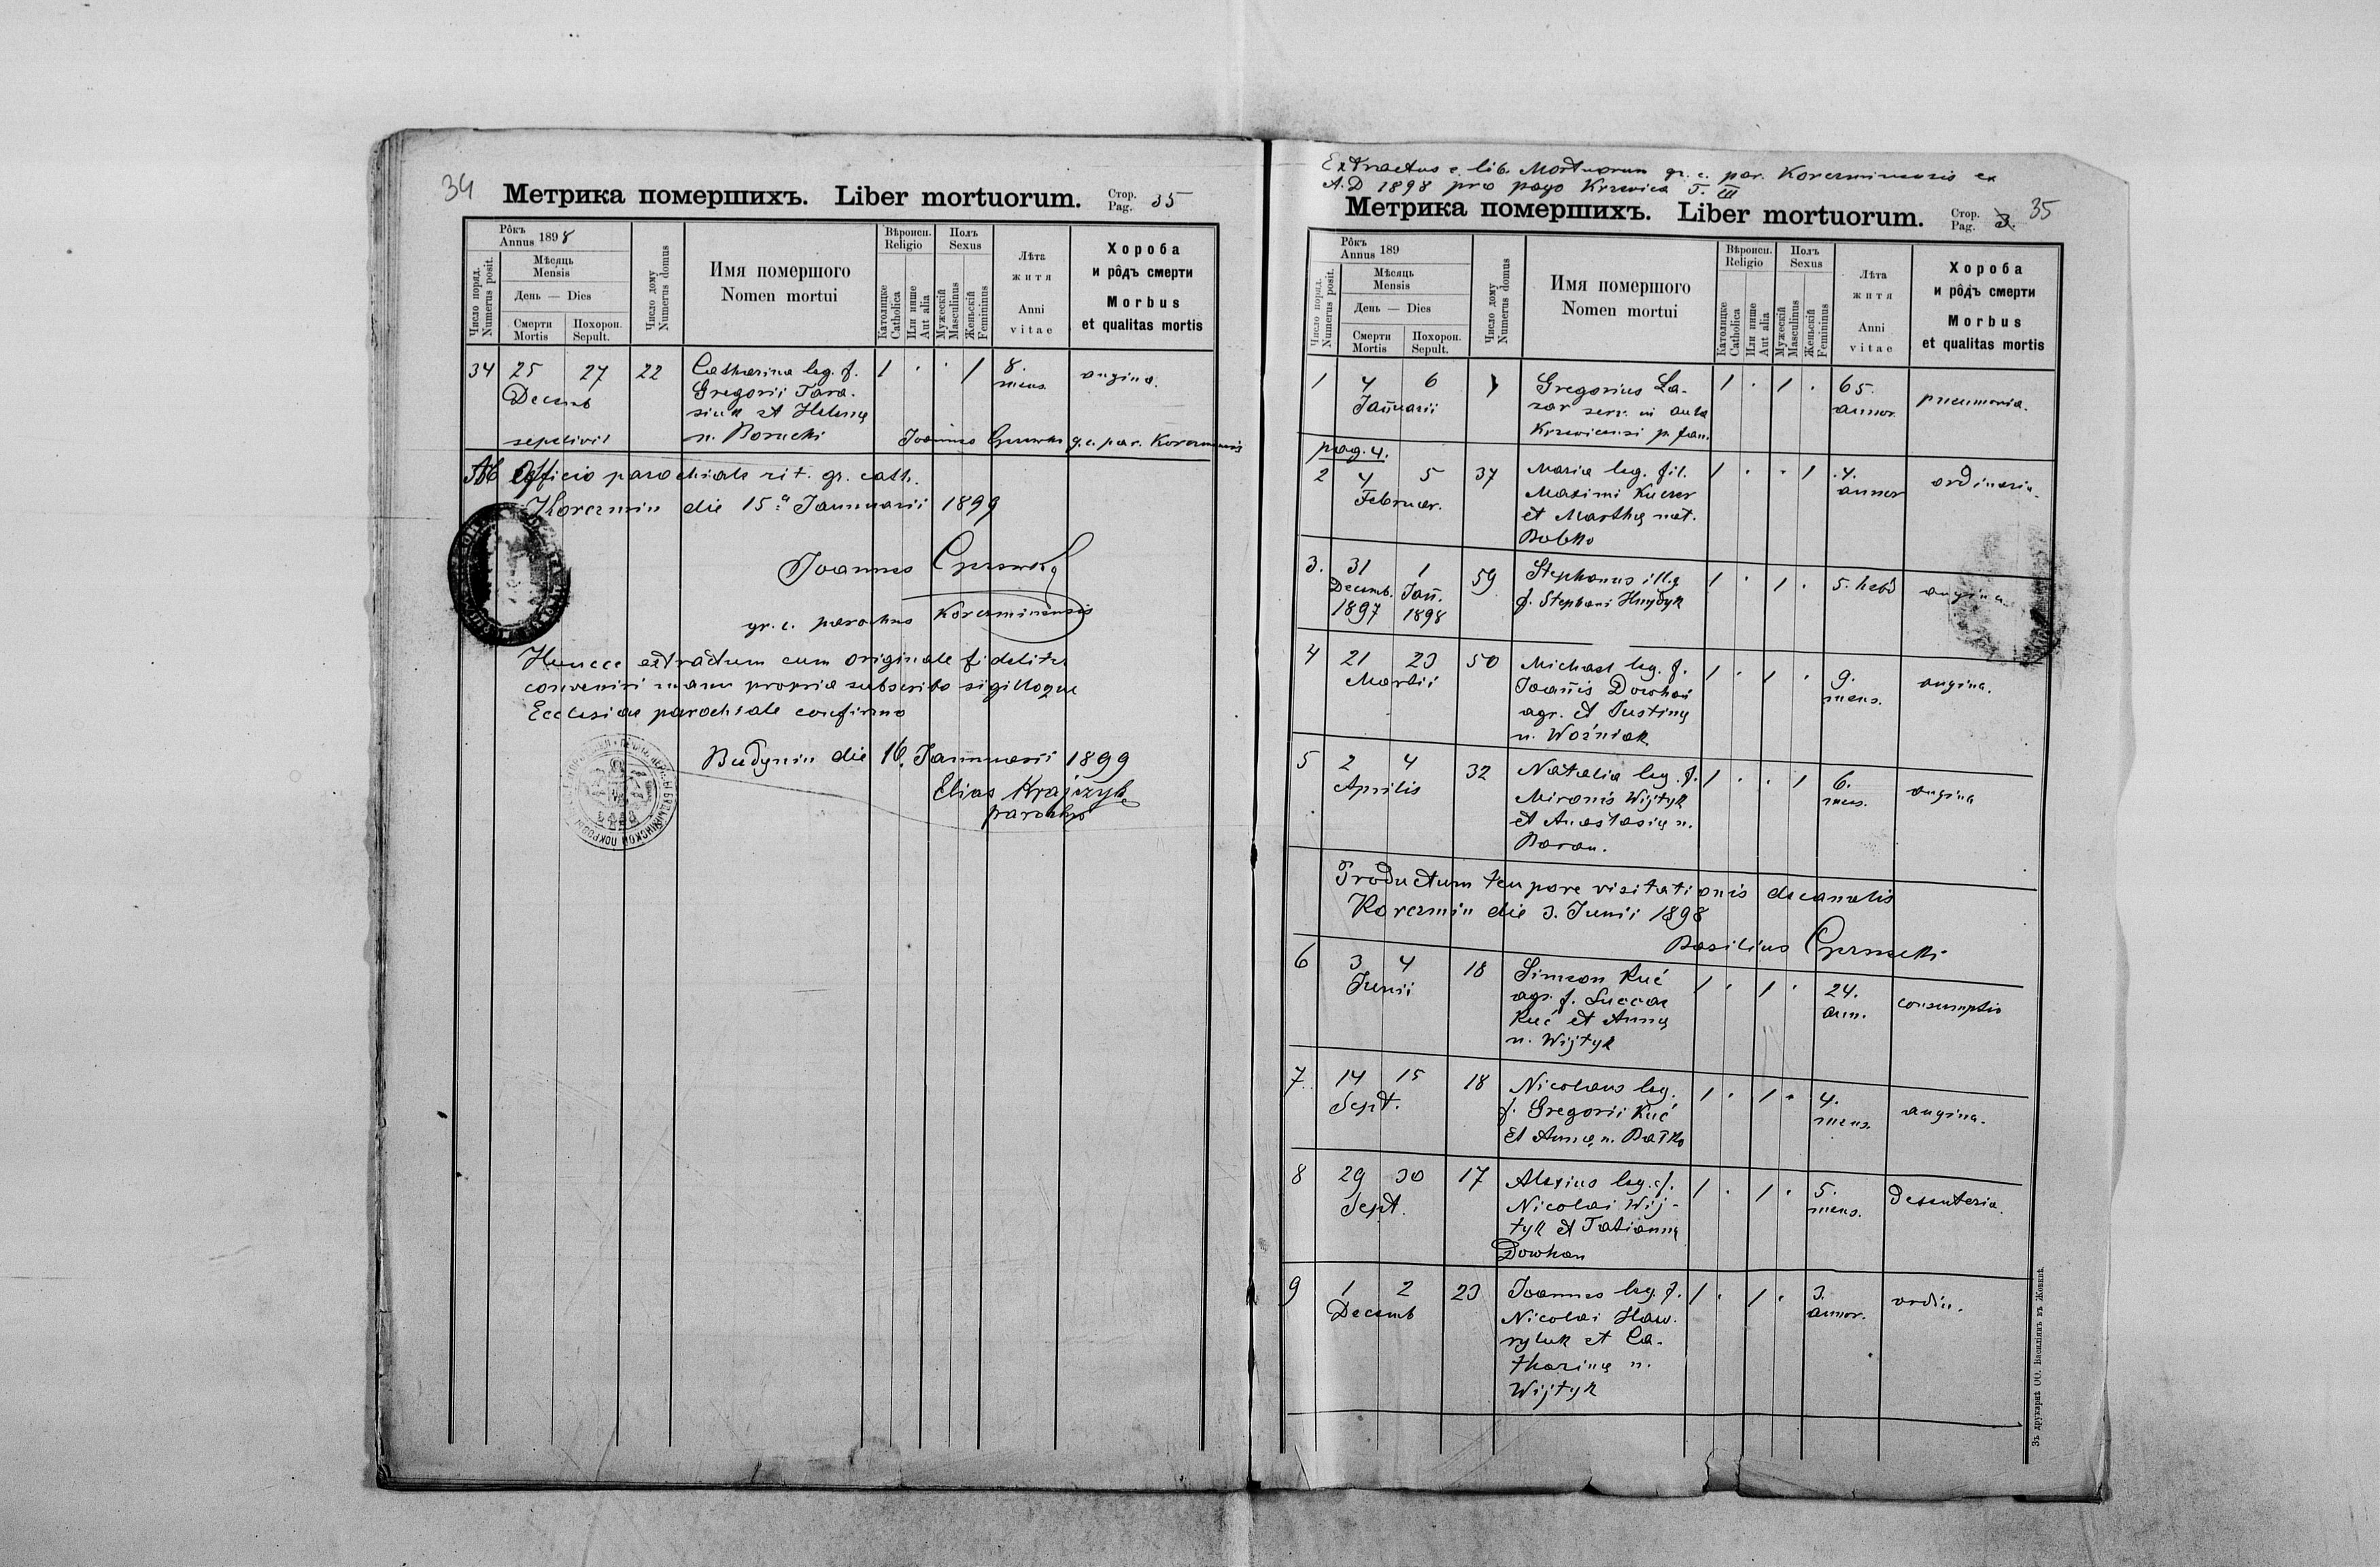 34
Метрика помершихъ. Liber mortuorum. Стор. Pag. 35
Рôкъ Annus 1898
Мѣсяць Mensis
День — Dies
Смерти Mortis
Похорон. Sepult.
Число поряд. Numerus posit.
Число дому Numerus domus
Имя помершого Nomen mortui
Вѣроисп. Religio
Католицке Catholica
Или инше Aut alia
Полъ Sexus
Мужескій Masculinus
Женьскій Femininus
Лѣта житя Anni vitae
Хороба и рôдъ смерти Morbus et qualitas mortis
34 25 27 22 Catharina leg. f. 1 · · 1 8. angina.
Decemb Gregorii Tara- mens.
siuk et Helenę
sepelivit n. Borucki Joannes g.c. par. Korczminensis
Ab Officio parochiale rit. gr. cath.
Korczmin die 15ª Januarii 1899
Joannes
gr. c. parochus Korczminensis
Huncce extractum cum originale fideliter
conveniri manu propria subscribo sigilloque
Ecclesiae parochiale confirmo
Budynin die 16. Januarii 1899
Elias Krajczyk
parochus
Extractus e lib. Mortuorum gr. c. par. Korczminensis ex
A.D 1898 pro pago Krzewica T. III
Метрика помершихъ. Liber mortuorum. Стор. Pag. 35
Рôкъ Annus 189
Мѣсяць Mensis
День — Dies
Смерти Mortis
Похорон. Sepult.
Число поряд. Numerus posit.
Число дому Numerus domus
Имя помершого Nomen mortui
Вѣроисп. Religio
Католицке Catholica
Или инше Aut alia
Полъ Sexus
Мужескій Masculinus
Женьскій Femininus
Лѣта житя Anni vitae
Хороба и рôдъ смерти Morbus et qualitas mortis
1 4 6 Gregorius La- 1 · 1 · 65. pneumonia.
Januarii zar serv. in aula annor.
Krzewicensi p. fam.
pag. 4.
2 4 5 37 Maria leg. fil. 1 · · 1 4. ordinaria.
Februar. Maximi Kuczer annor
et Marthę nat.
Bobko
3. 31 1 59 Stephanus illeg 1 · 1 · 5. hebd angina.
Decemb. Jan. f. Stephani Hnydyk
1897 1898
4 21 23 50 Michael leg. f. 1 · 1 · 9. angina.
Martii Joannis Dowhań mens.
agr. et Justinę
n. Woźniak
5 2 4 32 Natalia leg. f. 1 · · 1 6. angina
Aprilis Mironis Wijtyk mens.
et Anastasię n.
Baran.
Productum tempore visitationis decanalis
Korczmin die 3. Junii 1898
Basilius
6 3 4 18 Simeon Kuć 1 · 1 · 24. consumptio
Junii agr. f. Luccae ann.
Kuć et Annę
n. Wijtyk
7 14 15 18 Nicolaus leg. 1 · 1 · 4. angina.
Sept. f. Gregorii Kuć mens.
et Annę n. Batko
8 29 30 17 Alexius leg. f. 1 · 1 · 5. dessenteria.
Sept. Nicolai Wij- mens.
tyk et Tatiannę
Dowhan
9 1 2 23 Joannes leg. f. 1 · 1 · 3. ordin.
Decemb Nicolai Haw- annor.
ryluk et Ca-
tharinę n.
Wijtyk
Зъ друкарнѣ ОО. Василіянъ въ Жовквѣ.